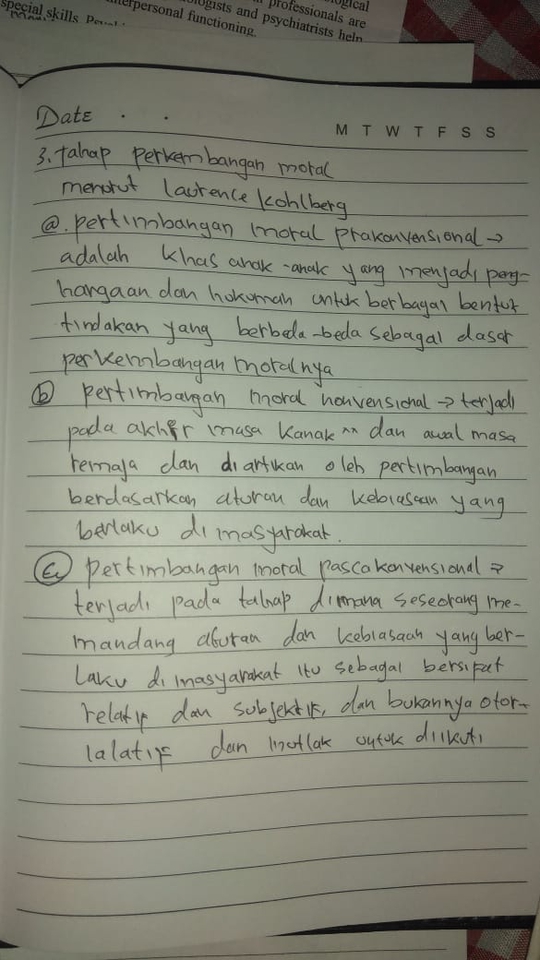 special skills
interpersonal functioning.
ologists and psychiatrists help
professionals are
ological
Date . .
M T W T F S S
3. tahap perkembangan moral
menurut laurence kohlberg
@. pertimbangan moral prakonvensional →
adalah khas anak-anak yang menjadi peng-
hargaan dan hukuman untuk berbagai bentuk
tindakan yang berbeda-beda sebagai dasar
perkembangan moralnya
b pertimbangan moral konvensional → terjadi
pada akhir masa kanak ^^ dan awal masa
remaja dan diartikan oleh pertimbangan
berdasarkan aturan dan kebiasaan yang
berlaku di masyarakat.
c. pertimbangan moral pascakonvensional →
terjadi pada tahap dimana seseorang me-
mandang aturan dan kebiasaan yang ber-
laku di masyarakat itu sebagai bersifat
relatif dan subjektif, dan bukannya otor-
lalatif dan mutlak untuk diikuti